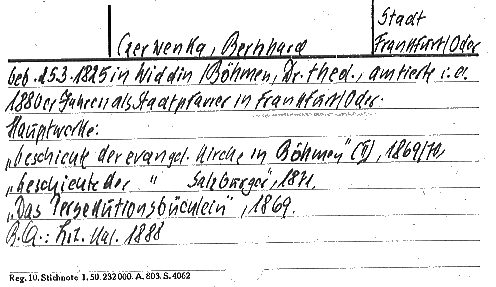 Stadt
Czerwenka, Bernhard Frankfurt/Oder
geb. 25.3.1825 in Widdin Böhmen, Dr. theol., amtierte i.d.
1880er Jahren als Stadtpfarrer in Frankfurt/Oder.
Hauptwerke:
„Geschichte der evangel. Kirche in Böhmen" (II), 1869/70,
„Geschichte der " Salzburger", 1871,
„Das Persekutionsbüchlein", 1869.
B.A.: Lit. Kal. 1888
Reg. 10. Stichnote 1. 50. 232000. A. 803. S. 4062